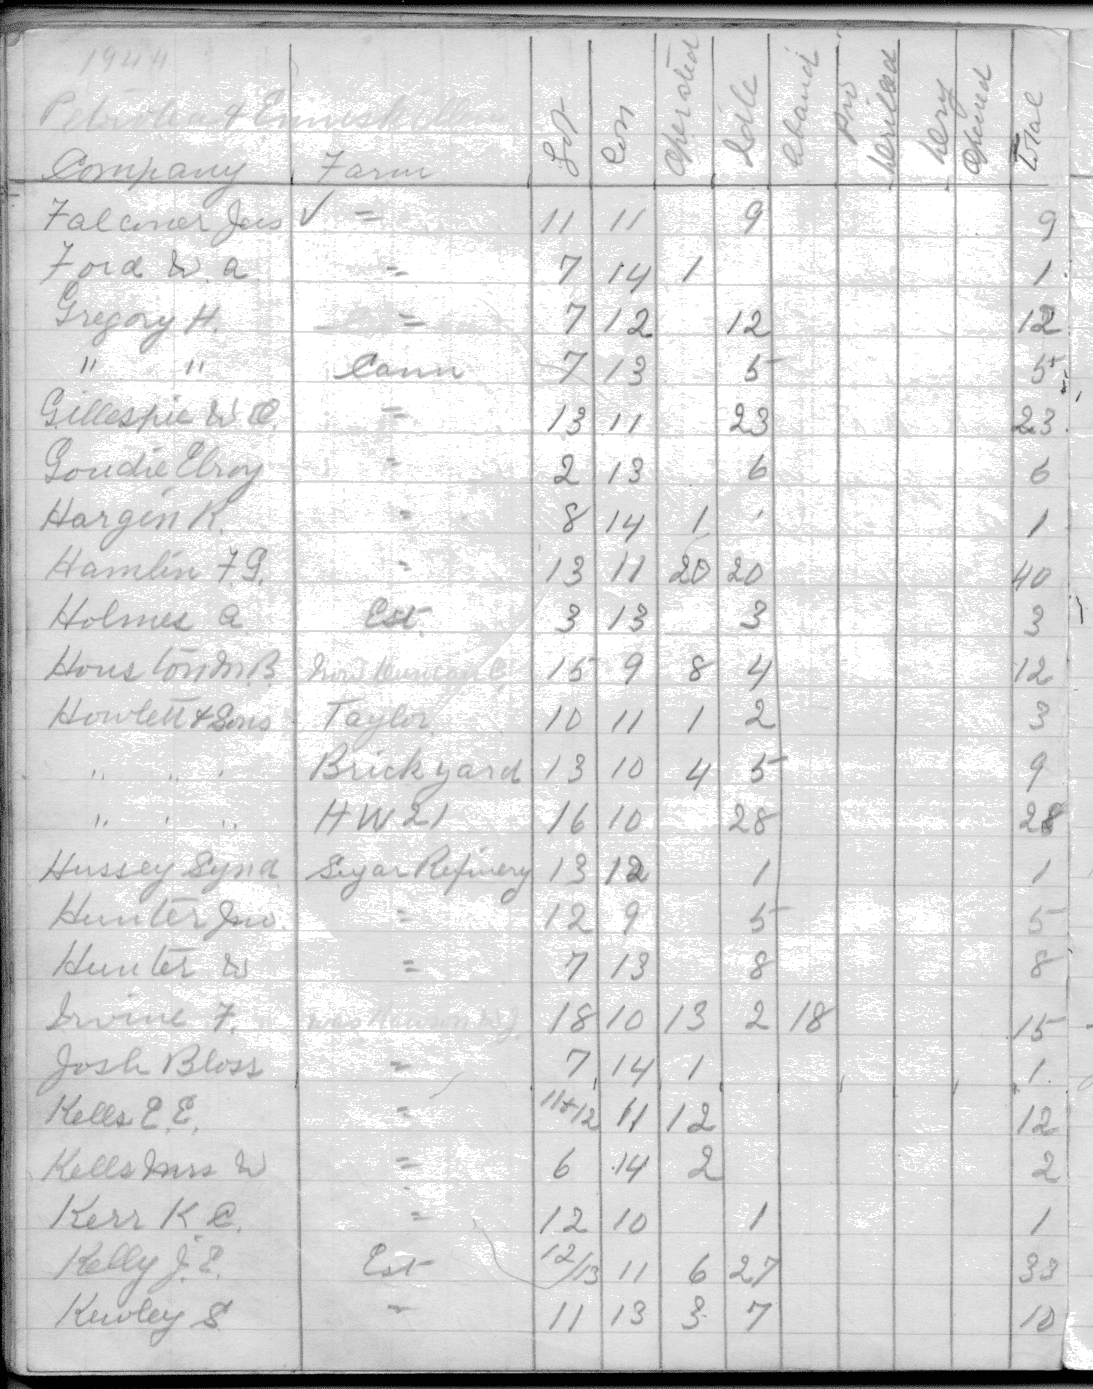 1944
Petrolia & Enniskillen
Company Farm Lot Con Operated Idle Aband New Drilled Derg Opened Total
Falconer Jas ✓ = 11 11 9 9
Ford W. A. = 7 14 1 1
Gregory H. = 7 12 12 12
" " Cann 7 13 5 5
Gillespie W O. = 13 11 23 23
Goudie Elroy = 2 13 6 6
Hargin K. = 8 14 1 1
Hamlin F. G. = 13 11 20 20 40
Holmes A Est. 3 13 3 3
Houston M. B. 15 9 8 4 12
Howlett & Sons Taylor 10 11 1 2 3
" " " Brickyard 13 10 4 5 9
" " " HW 21 16 10 28 28
Hussey Synd. Sugar Refinery 13 12 1 1
Hunter Jno. = 12 9 5 5
Hunter W = 7 13 8 8
Irvine F. was 18 10 13 2 18 15
Josh Bloss = 7 14 1 1
Kells E. E. = 11+12 11 12 12
Kells Mrs W = 6 14 2 2
Kerr K C. = 12 10 1 1
Kelly J. E. Est 12/13 11 6 27 33
Kewley S = 11 13 3 7 10